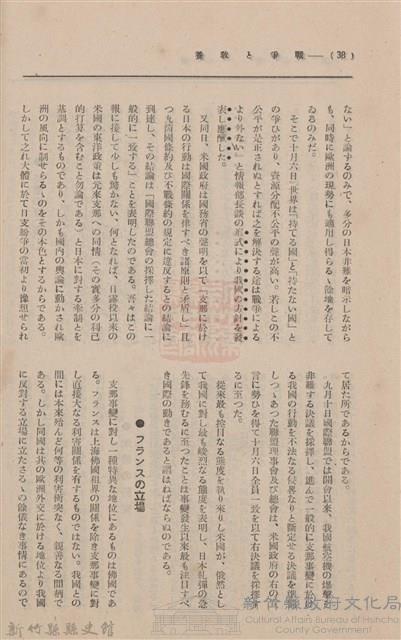 養教と爭戰——（38）
ない」と論ずるのみで、多分の日本非難を暗示しながら
も、同時に歐洲の現勢にも適用し得らるゝ餘地を存して
ゐるのみだ。
そこで十月六日「世界は『持てる國』と『持たない國』と
の爭ひがあり、資源分配不公平の聲が高い。若しこの不
公平が是正されぬとすれば之を解決する途は戰爭による
より外ない」と情報部長談の形式により我國の方針を發
表し應酬した。
又同日、米國政府は國務省の聲明を以て「支那に於け
る日本の行動は國際關係を律すべき諸原則と矛盾し」且
つ九箇國條約及び不戰條約の規定に違反するとの結論に
到達し、その結論は「國際聯盟總會の採擇した結論に一
般的に一致する」ことを表明したのである。吾々はこの
報に接して少しも驚かない、何となれば、日露役以來の
米國の東洋政策は元來支那への同情（その實多分の利己
的打算を含むこと勿論である）と日本に對する牽制とを
基調とするものであり、しかも國内の輿論に動かされ歐
洲の風向に制せらるゝのをその本色とするからである。
しかして之れ大體に於て日支紛爭の當初より豫想せられ
て居た所であるからである。
九月十日國際聯盟では開會以來、我國航空機の爆擊を
非難する決議を採擇し、進んで一般的に支那事變に於け
る我國の行動を不法なる侵害なりと斷定せる決議を進め
つゝあつた聯盟理事會及び總會は、米國政府の右の聲
言に勢ひを得て十月六日全員一致を以て右決議を採擇す
るに至つた。
從來最も捨目なる態度を執り來りし米國が、俄然とし
て我國に對し最も峻烈なる態度を表明し、日本糺彈の急
先鋒を務むるに至つたことは事變發生以來最も注目すべ
き國際の動きであると謂はねばならぬのである。
● フランスの立場
支那事變に對し一種特異な地位にあるものは佛國であ
る。フランスは上海佛國租界の關係を除き支那事變に對
し直接なる利害關係を有するものではない。我國との
間には本來殆んど何等の利害衝突なく、親善なる間柄で
ある。しかし同國は其の歐洲外交に於ける地位より我國
に反對する立場に立たさるゝの餘儀なき事情にあるので
新竹縣縣史館
新竹縣政府文化局
Cultural Affairs Bureau of Hsinchu
County Government